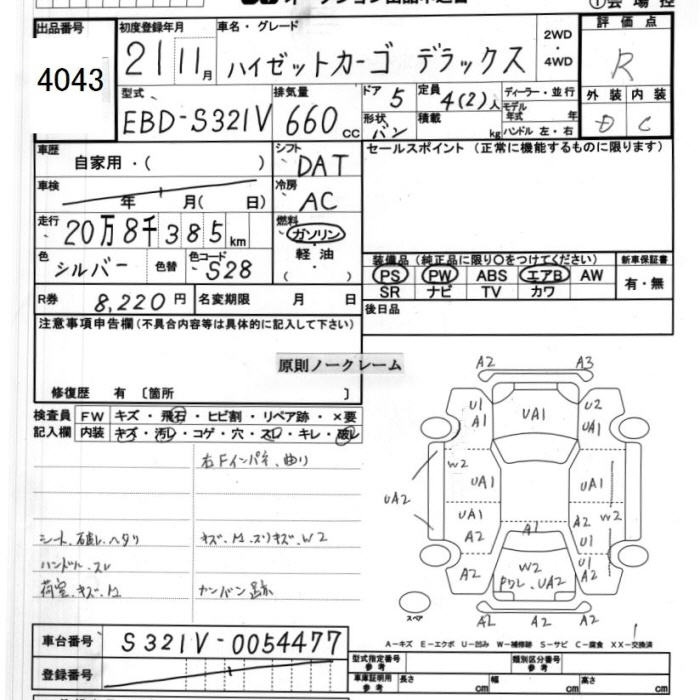 ①会場控
出品番号 4043
初度登録年月 21 11月
車名・グレード ハイゼットカーゴ デラックス
2WD
・
4WD
評価点 R
外装 内装
D C
型式 EBD-S321V
排気量 660cc
ドア 5
定員 4(2)人
ディーラー・並行
モデル年式 年
形状 バン
積載 kg
ハンドル 左・右
車歴 自家用・( )
シフト DAT
セールスポイント (正常に機能するものに限ります)
車検 年 月( 日)
冷房 AC
走行 20万8千385km
燃料 ガソリン
軽油
( ・ )
色 シルバー
色替
色コード S28
装備品 (純正品に限り○をつけてください)
新車保証書
PS PW ABS エアB AW
SR ナビ TV カワ
有・無
R券 8,220円
名変期限 月 日
後日品
注意事項申告欄(不具合内容等は具体的に記入して下さい)
原則ノークレーム
修復歴 有 〔箇所 〕
検査員 FW キズ・飛石・ヒビ割・リペア跡・×要
記入欄 内装 キズ・汚レ・コゲ・穴・スレ・キレ・破レ
右Fインパネ、曲り
シート、破レ、ヘタリ
キズ、凹、スリキズ、W2
ハンドル、スレ
荷室、キズ、凹
カンバン跡
A2 A3
U1 A1 UA1 U2 UA1
W2
UA2 UA1 UA1
UA1 A2 A1 A2 W2 U1
A2 W2 UA2 U1 A2
A2 A2 A2
スペア
A-キズ E-エクボ U-凹み W-補修跡 S-サビ C-腐食 XX-交換済
車台番号 S321V-0054477
登録番号
型式指定番号 参考
類別区分番号 参考
車庫証明用 参考 長さ cm 幅 cm 高さ cm